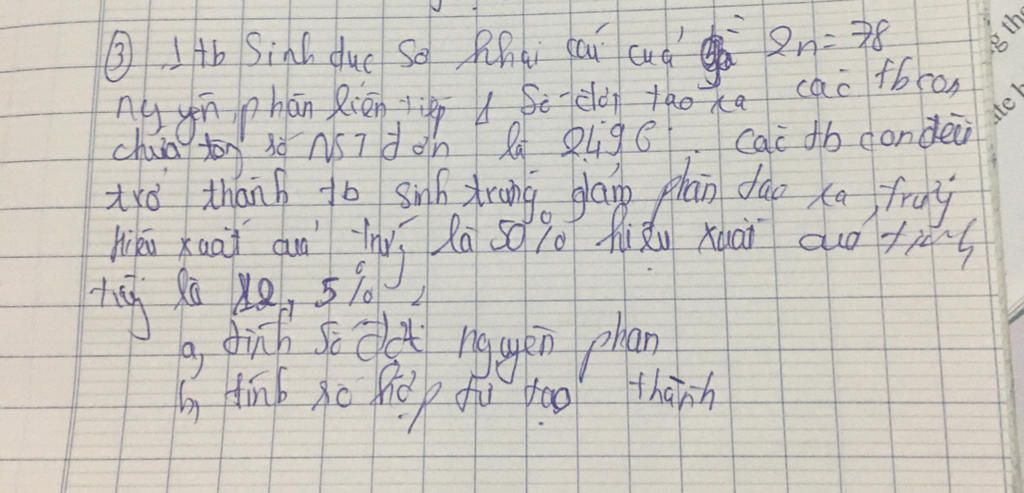 ③ 1 tb Sinh dục sơ khai cái của gà 2n = 78
nguyên phân liên tiếp 1 số đợt tạo ra các tb con
chứa tổng số NST đơn là 2496. Các tb con đều
trở thành tb sinh trứng giảm phân tạo ra trứng
Hiệu xuất của trứng là 50% hiệu xuất của tinh
trùng là 12,5%
a, tính số đợt nguyên phân
b, tính số hợp tử tạo thành